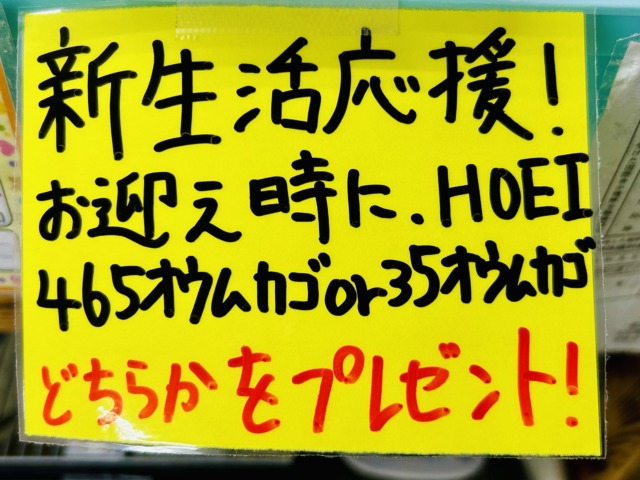 新生活応援!
お迎え時に、HOEI
465オウムカゴor35オウムカゴ
どちらかをプレゼント!